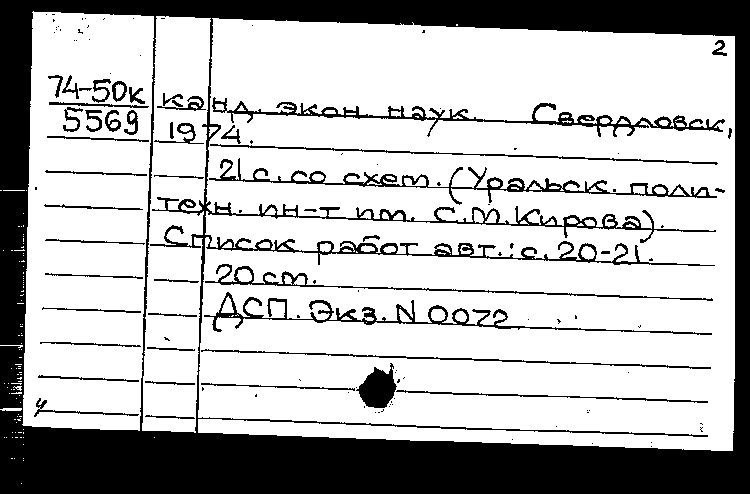 2
74-50к канд. экон. наук. Свердловск,
5569 1974.
21 с. со схем. (Уральск. поли-
техн. ин-т им. С.М.Кирова).
Список работ авт.: с. 20-21.
20 см.
ДСП. Экз. N 0072